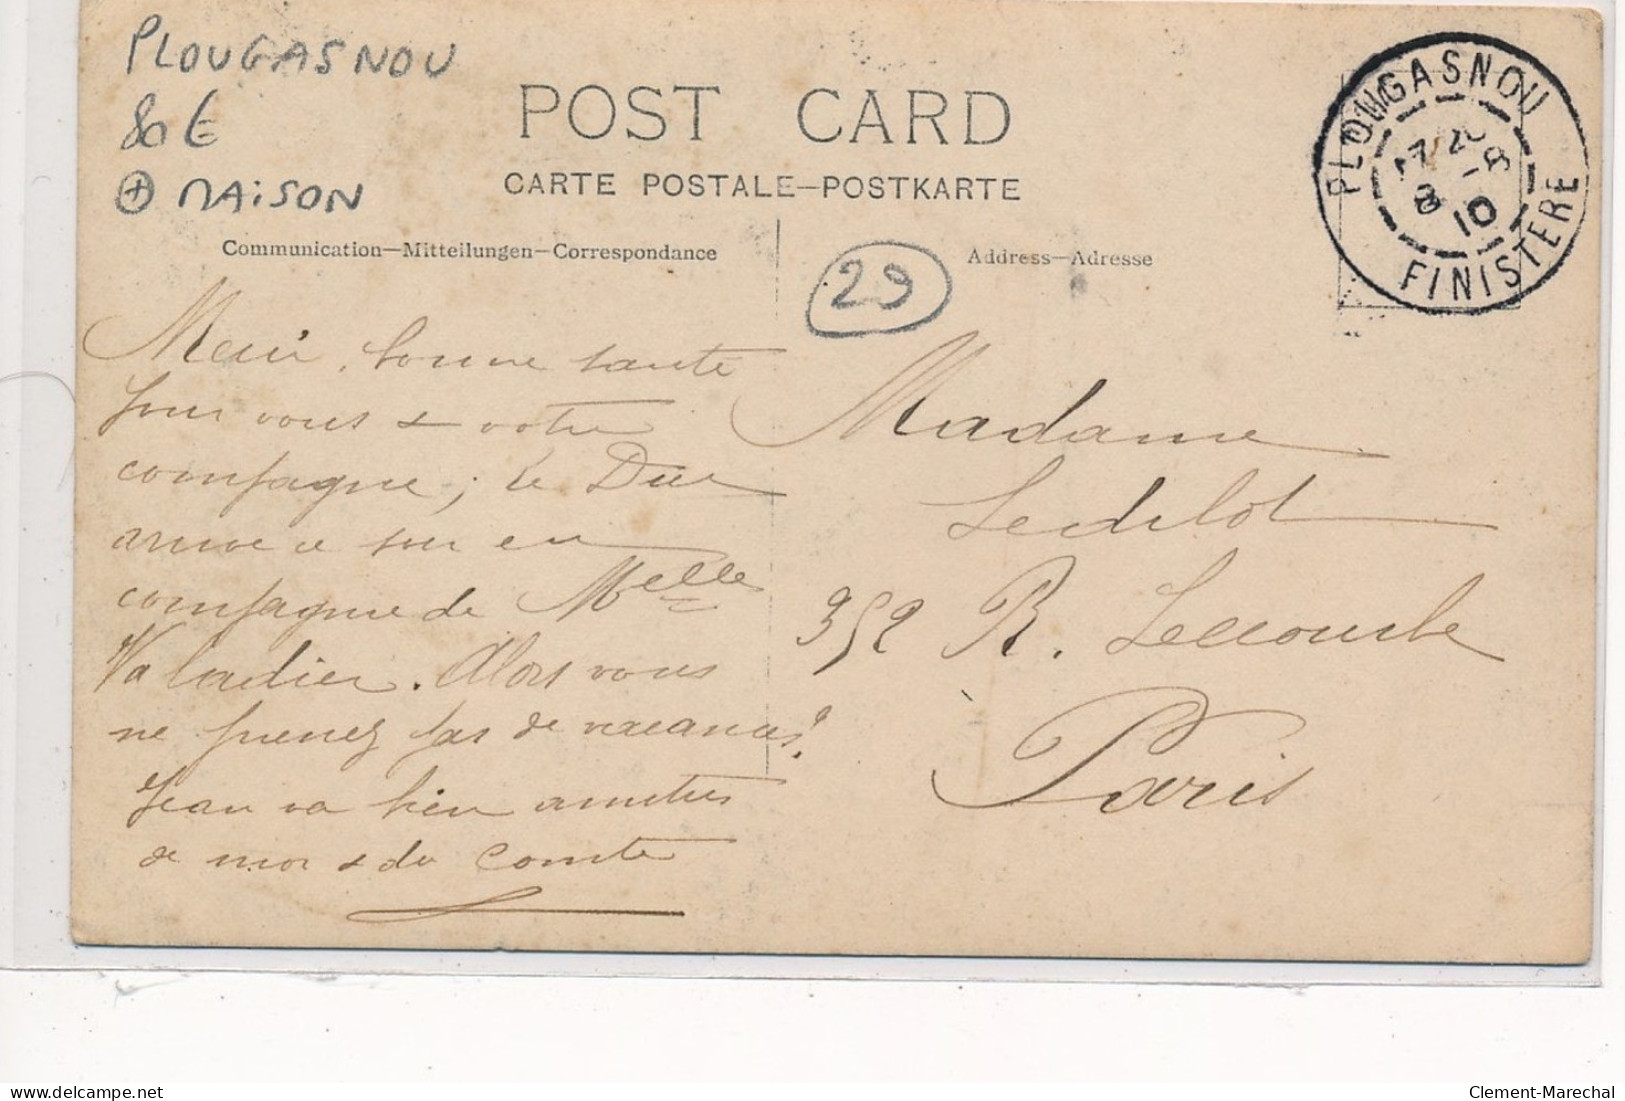 PLOUGASNOU
80 €
+ MAISON
POST CARD
CARTE POSTALE—POSTKARTE
Communication—Mitteilungen—Correspondance
Address—Adresse
29
PLOUGASNOU
17 20
8 -8
10
FINISTERE
Merci, bonne santé
pour vous & votre
compagne; le Duc
arrive ce soir en
compagnie de Melle
Valadier. Alors vous
ne prenez pas de vacances?
Jean va bien amitiés
de moi & du Comte
Madame
Ledilot
352 R. Lecourbe
Paris
delcampe.net
Clement-Marechal